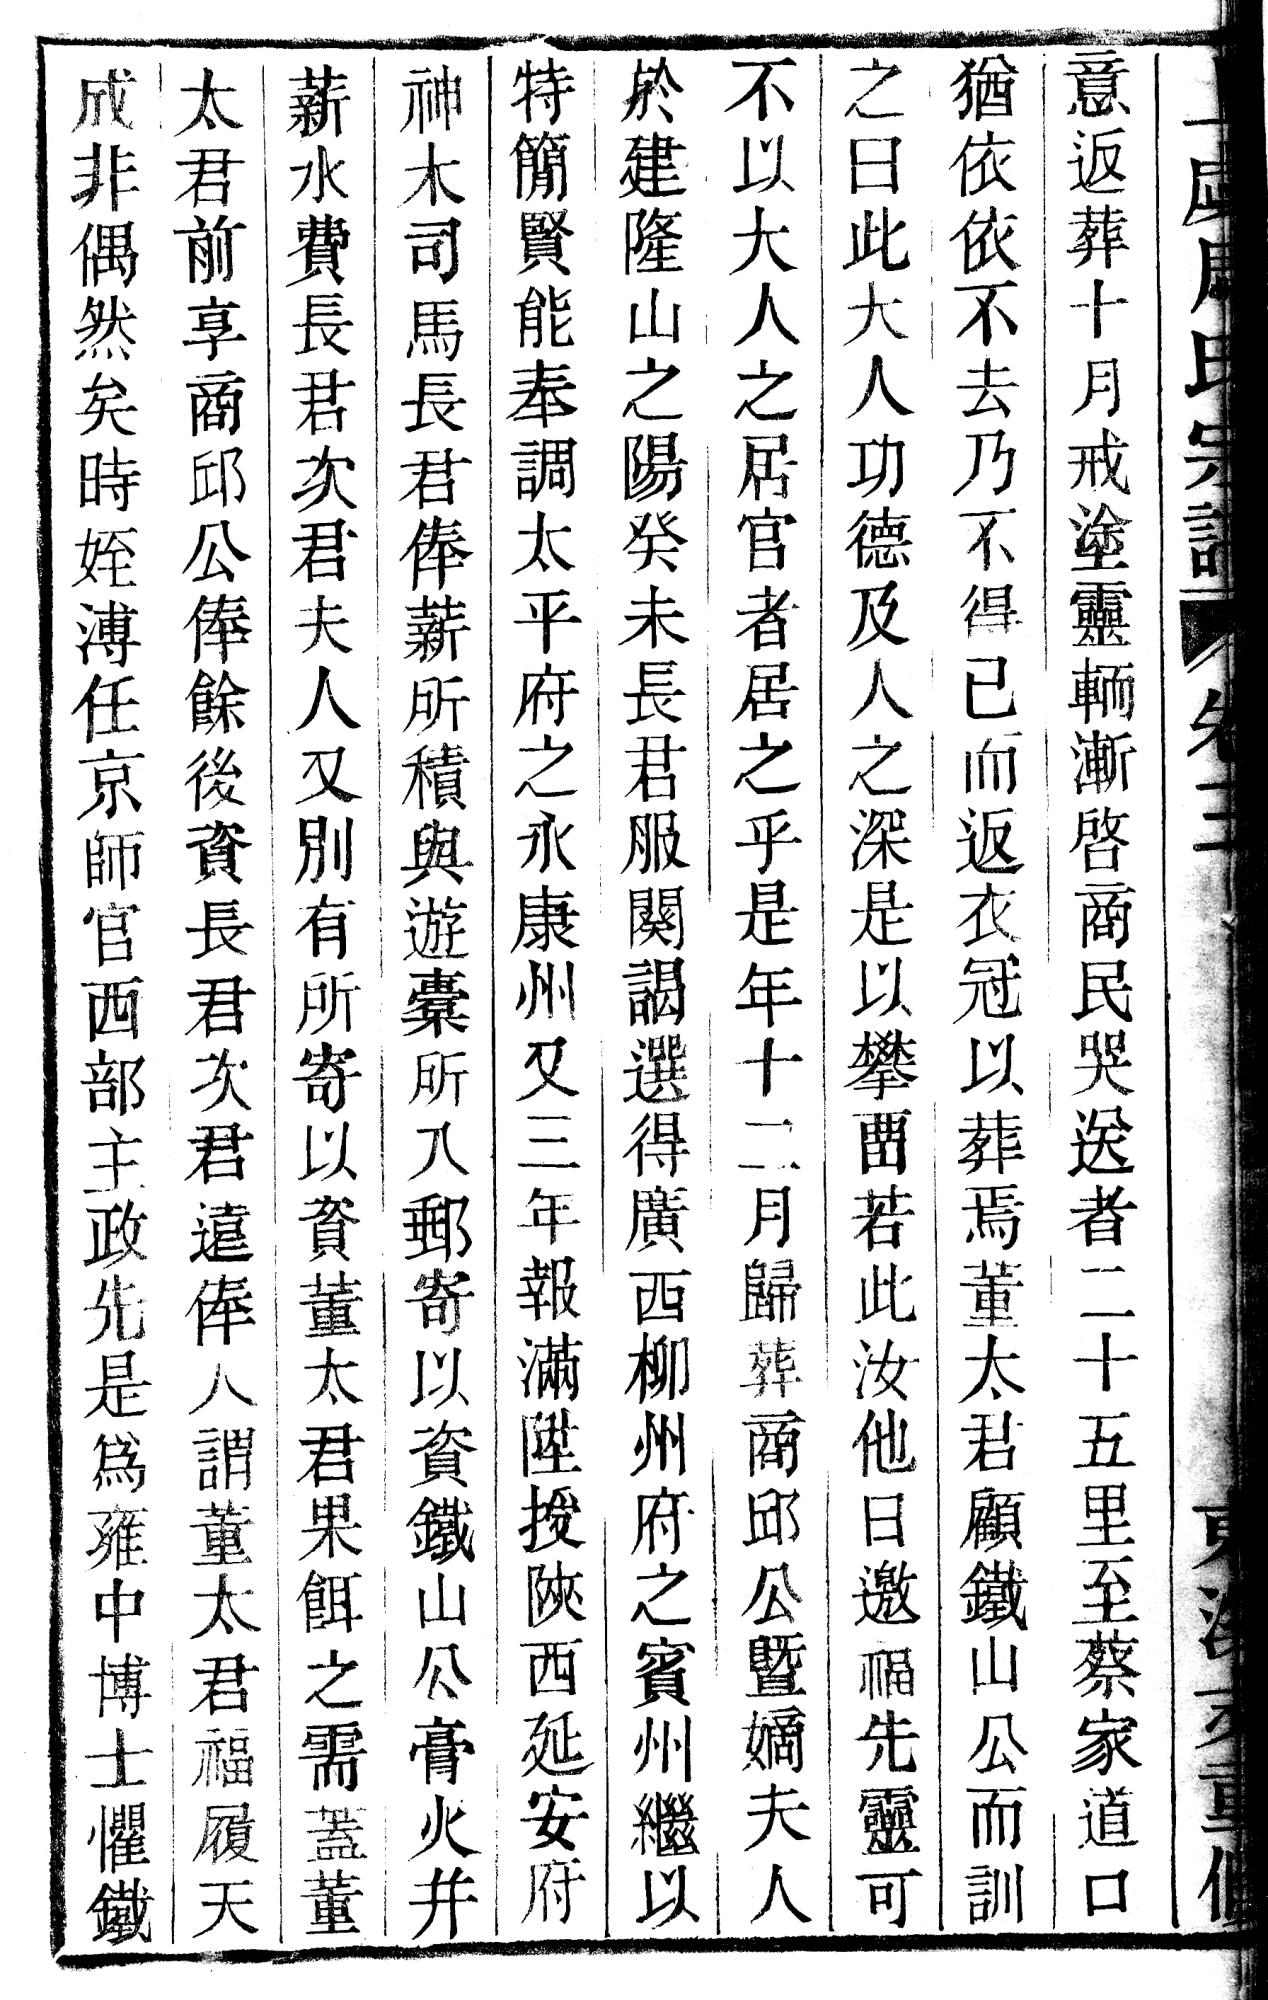 意返葬十月戒塗靈輀漸啓商民哭送者二十五里至蔡家道口
猶依依不去乃不得已而返衣冠以葬焉董太君顧鐵山公而訓
之曰此大人功德及人之深是以攀畱若此汝他日邀福先靈可
不以大人之居官者居之乎是年十二月歸葬商邱公曁嫡夫人
於建隆山之陽癸未長君服闋謁選得廣西柳州府之賓州繼以
特簡賢能奉調太平府之永康州又三年報滿陞授陝西延安府
神木司馬長君俸薪所積與遊橐所入郵寄以資鐵山公膏火并
薪水費長君次君夫人又別有所寄以資董太君果餌之需蓋董
太君前享商邱公俸餘後資長君次君遠俸人謂董太君福履天
成非偶然矣時姪溥任京師官西部主政先是爲雍中博士懼鐵